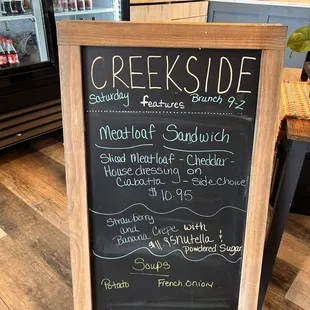 CREEKSIDE
Saturday features Brunch 9-2
Meatloaf Sandwich
Sliced Meatloaf - Cheddar -
House dressing on
Ciabatta - Side Choice
$10.95
Strawberry and
Banana Crepe with
Nutella &
powdered Sugar
Soups
Potato French Onion